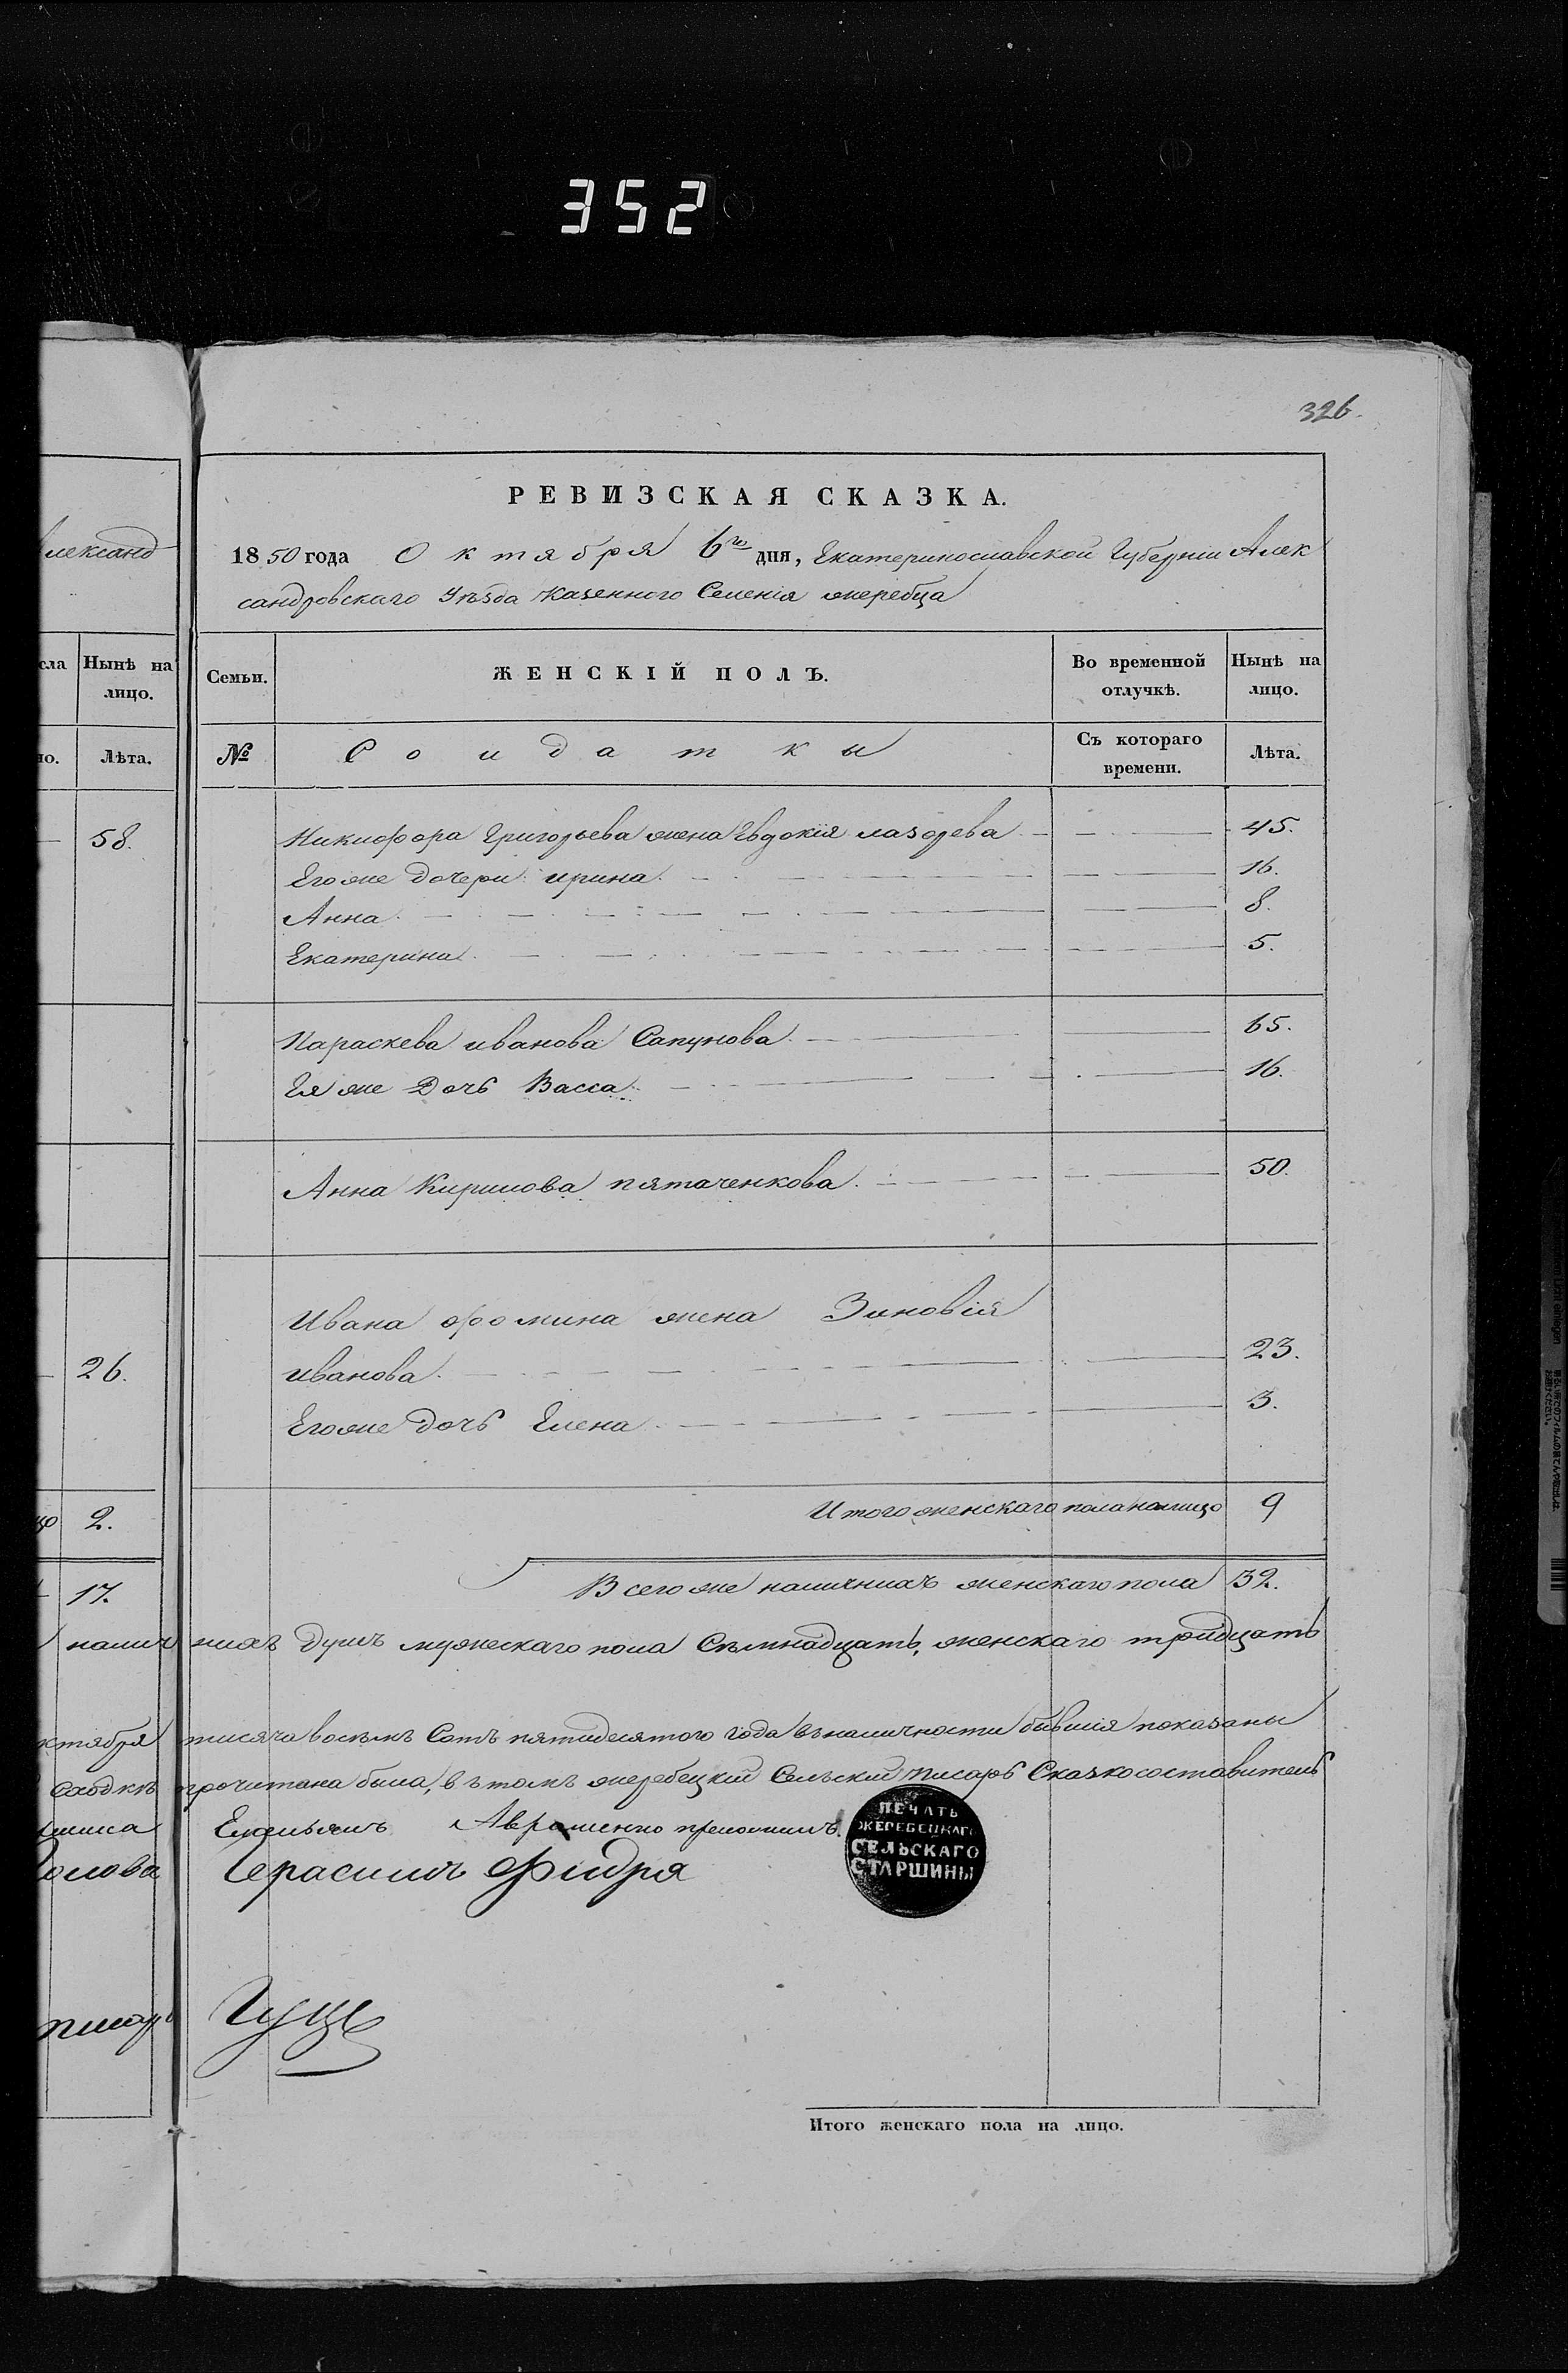 352
326.
РЕВИЗСКАЯ СКАЗКА.
лександ
1850 года Октября 6го дня, Екатеринославской Губерніи Алек
сандровскаго Уѣзда Казенного Селенія жеребца
сла Нынѣ на лицо. Семьи. ЖЕНСКІЙ ПОЛЪ. Во временной отлучкѣ. Нынѣ на лицо.
но. Лѣта. № Солдатки Съ котораго времени. Лѣта.
58. Никифора Григорьева жена Евдокія лазорева 45.
Его же дочери ирина. 16.
Анна. 8.
Екатерина. 5.
Параскева иванова Сапунова. 65.
Ея же Дочь Васса. 16.
Анна Кирилова пятаченкова. 50.
Ивана фомина жена Зиновія
26. иванова. 23.
Его же дочь Елена. 3.
2. Итого женскаго пола налицо 9
17. Всего же наличныхъ женскаго пола 32.
наличныхъ душъ мужескаго пола Семнадцать, женскаго тройдцать
ктября тисяча восѣмъ Сотъ пятидесятого года въ наличности бывшія показаны
Сходкѣ прочитана была, въ томъ жеребецкій Сельскій писарь Сказкосоставитель
Емельянъ Авраменко приложилъ.
Голова Герасимъ Фидря
ПЕЧАТЬ
ЖЕРЕБЕЦКАГО
СЕЛЬСКАГО
СТАРШИНЫ
писарь Гуць
Итого женскаго пола на лицо.